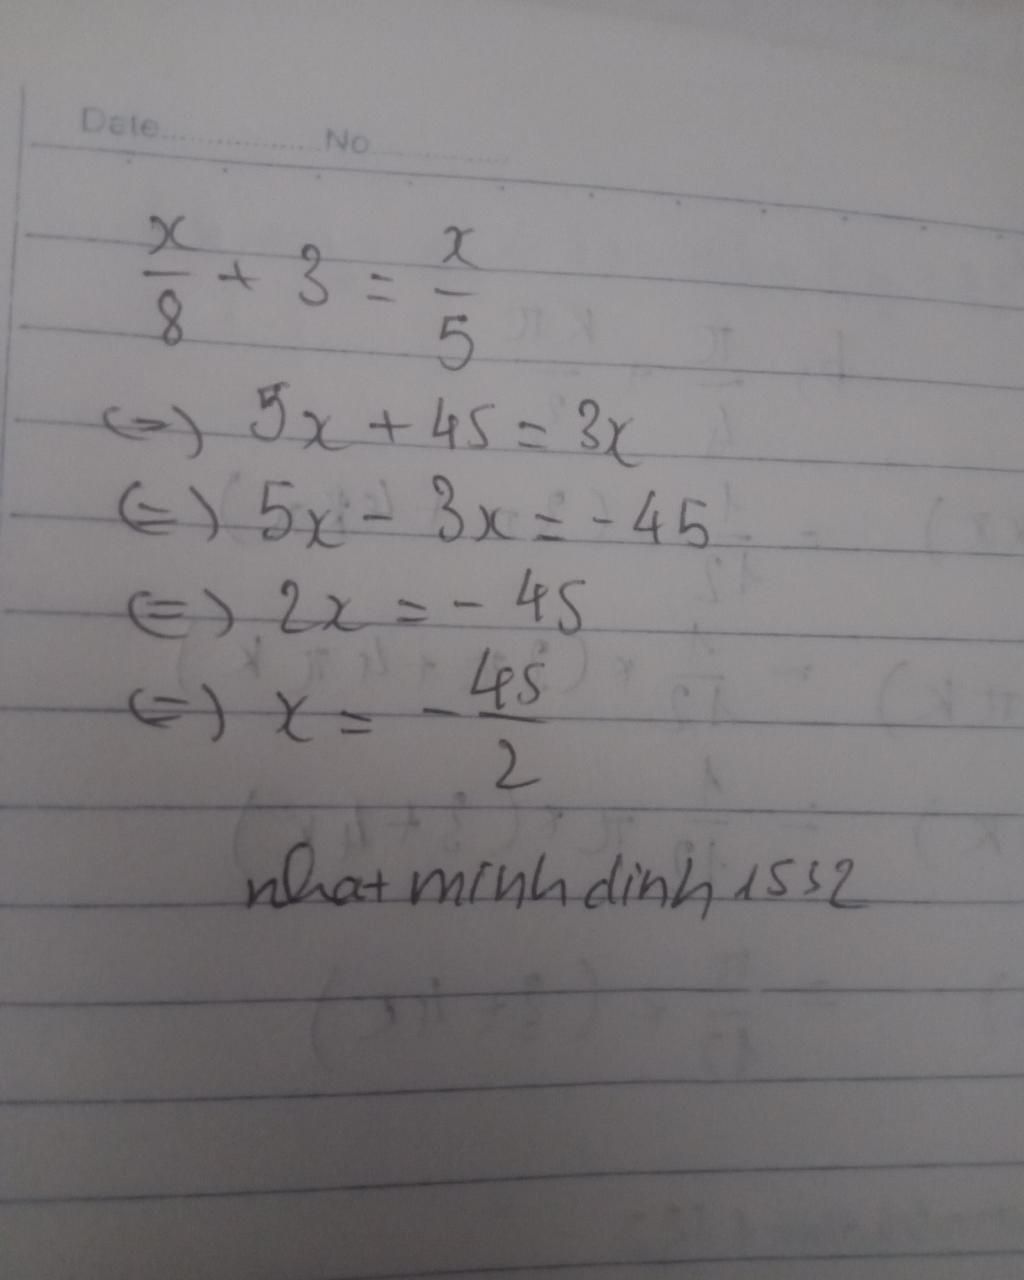 Date............... No...............
x/8 + 3 = x/5
<=> 5x + 45 = 3x
<=> 5x - 3x = -45
<=> 2x = - 45
<=> x = - 45/2
nhat minh dinh 1532